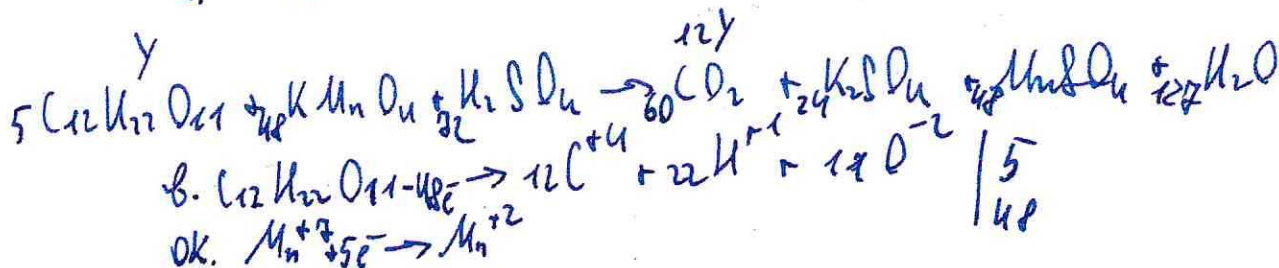 y 12y
5C12H22O11 + 48KMnO4 + 72H2SO4 → 60CO2 + 24K2SO4 + 48MnSO4 + 127H2O
в. C12H22O11 -48e⁻ → 12C⁺⁴ + 22H⁺¹ + 11O⁻² | 5
ок. Mn⁺⁷ +5e⁻ → Mn⁺² | 48